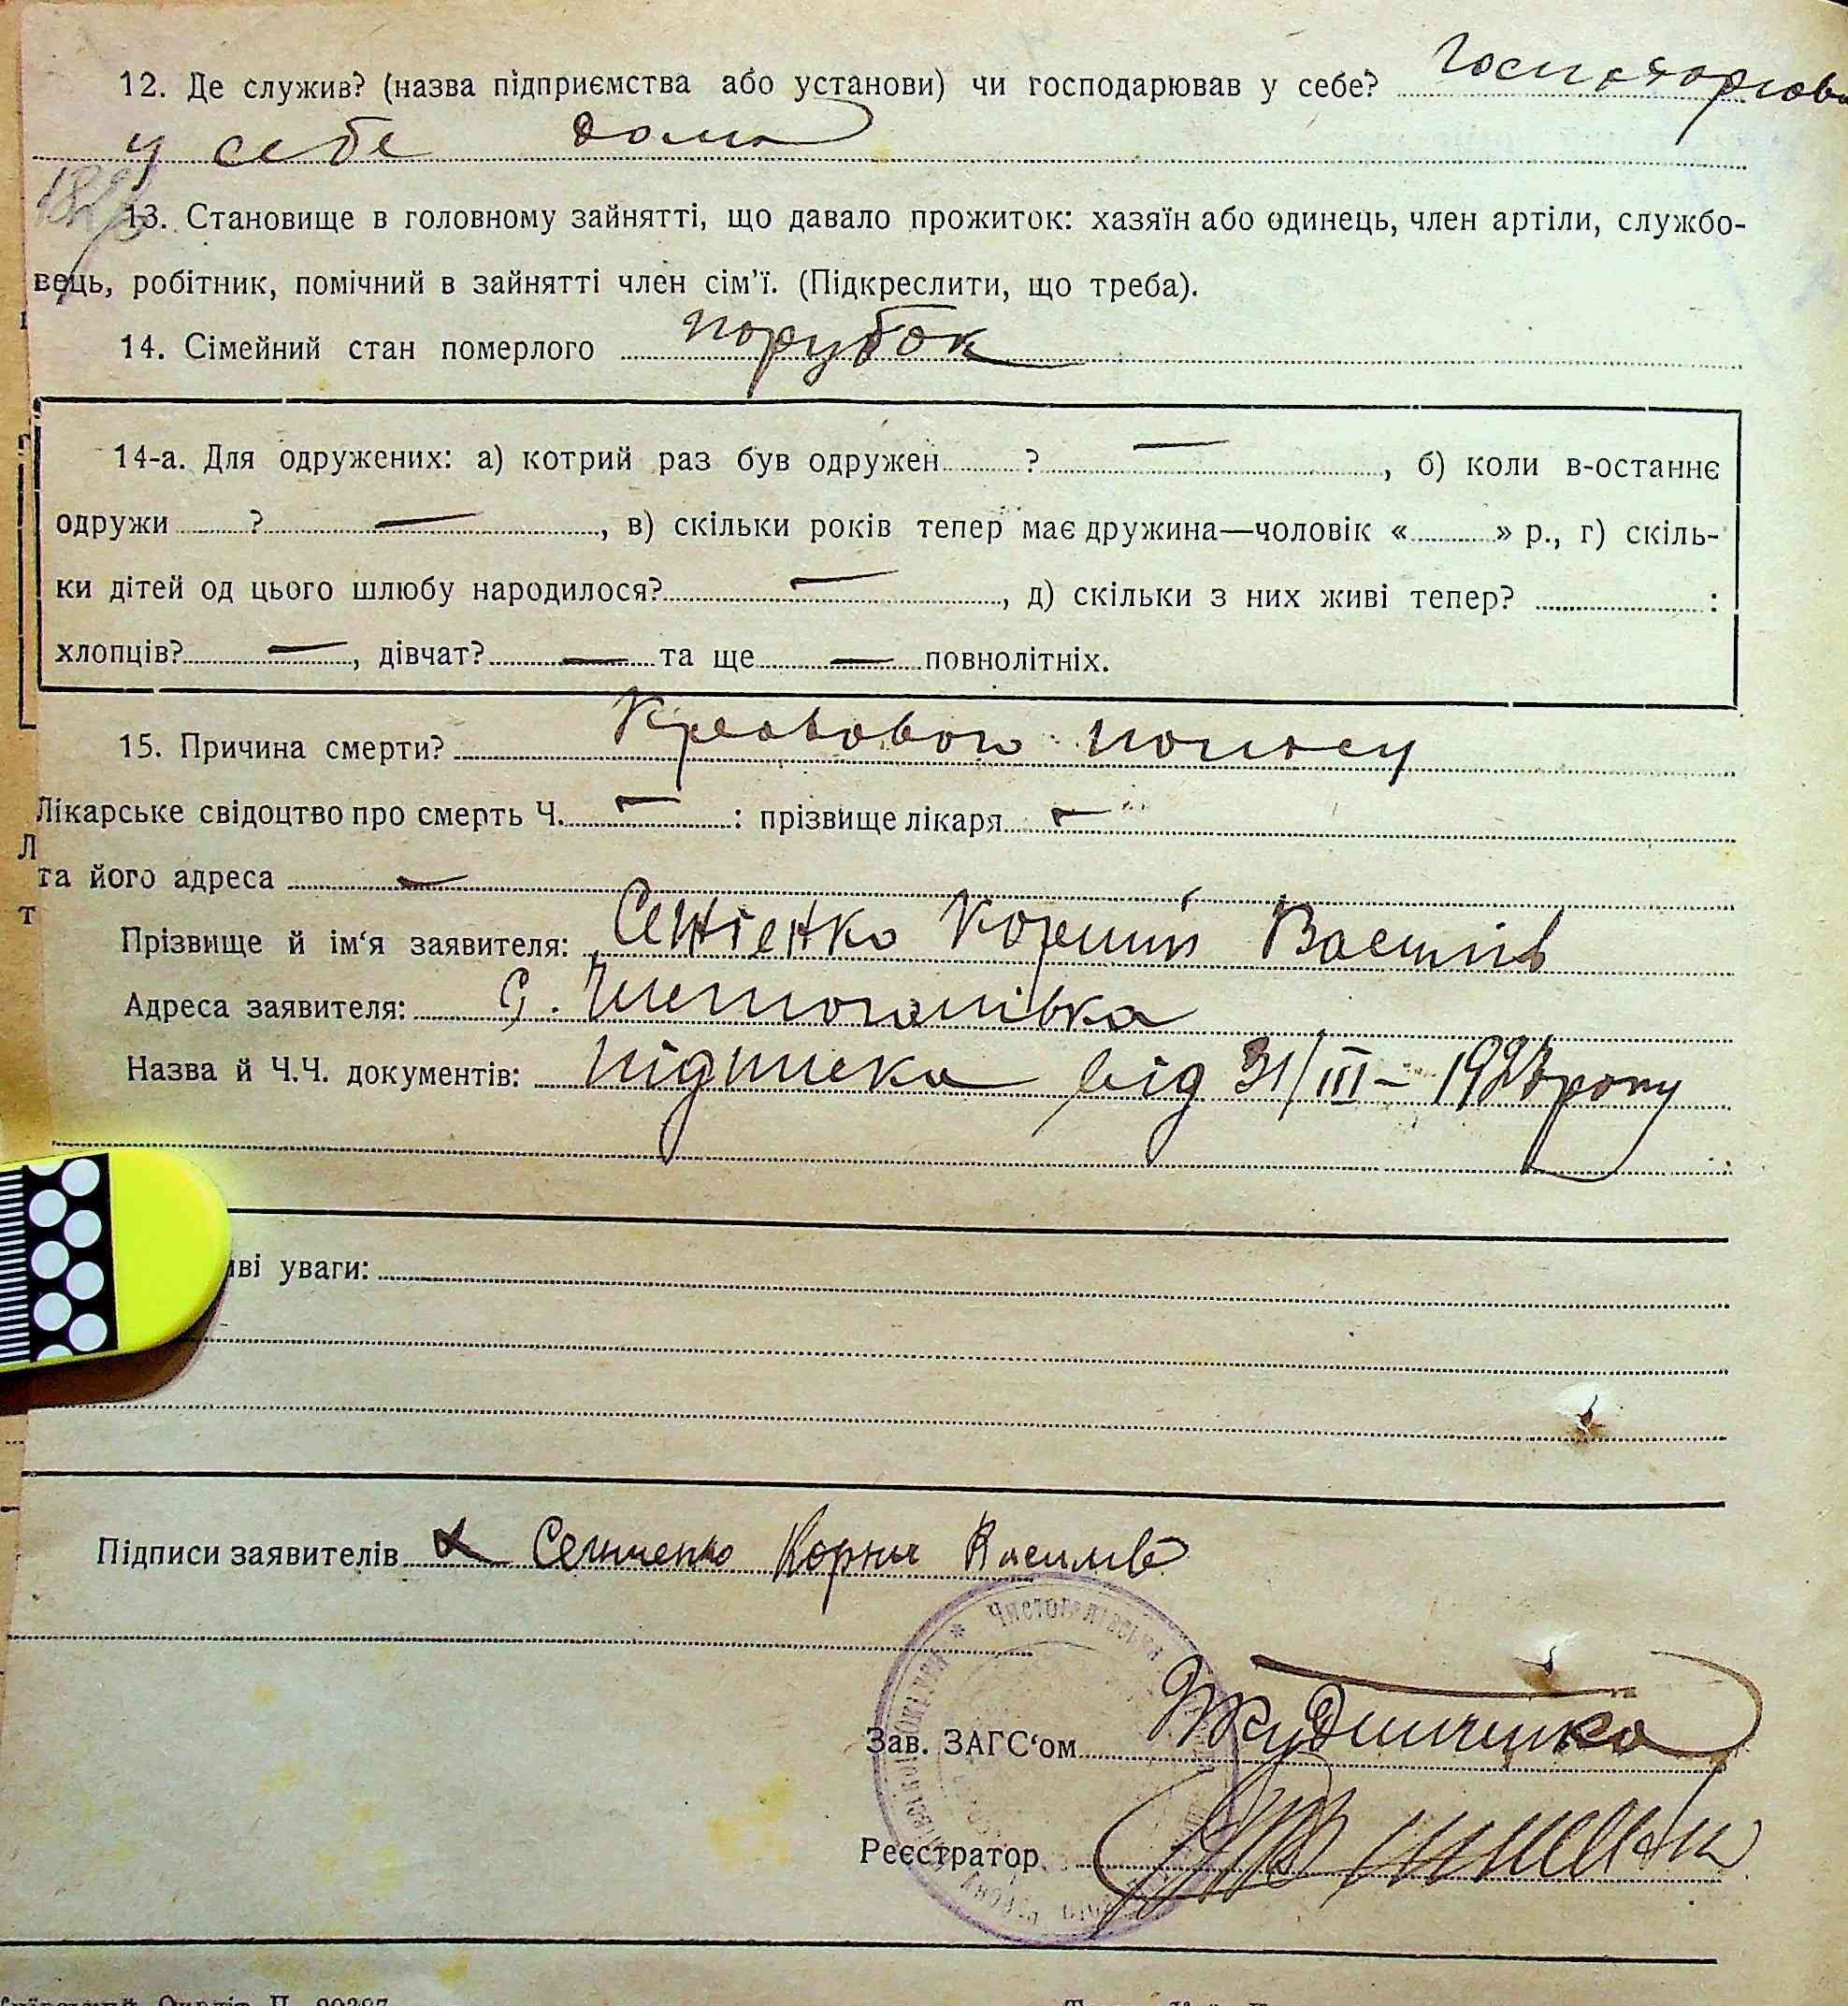 12. Де служив? (назва підприємства або установи) чи господарював у себе? Господарював
у себе дома
13. Становище в головному зайнятті, що давало прожиток: хазяїн або одинець, член артіли, службо-
вець, робітник, помічний в зайнятті член сім'ї. (Підкреслити, що треба).
14. Сімейний стан померлого парубок
14-а. Для одружених: а) котрий раз був одружен ? —, б) коли в-останнє
одружи ? —, в) скільки років тепер має дружина—чоловік « » р., г) скіль-
ки дітей од цього шлюбу народилося? —, д) скільки з них живі тепер? :
хлопців? —, дівчат? — та ще — повнолітніх.
15. Причина смерти?
Лікарське свідоцтво про смерть Ч. — : прізвище лікаря —
та його адреса —
Прізвище й ім'я заявителя: Корній Василів
Адреса заявителя: С. Чистогалівка
Назва й Ч.Ч. документів: підписка від 31/III – 1927 року
иві уваги:
Підписи заявителів Корній Василів
Зав. ЗАГС'ом
Реєстратор